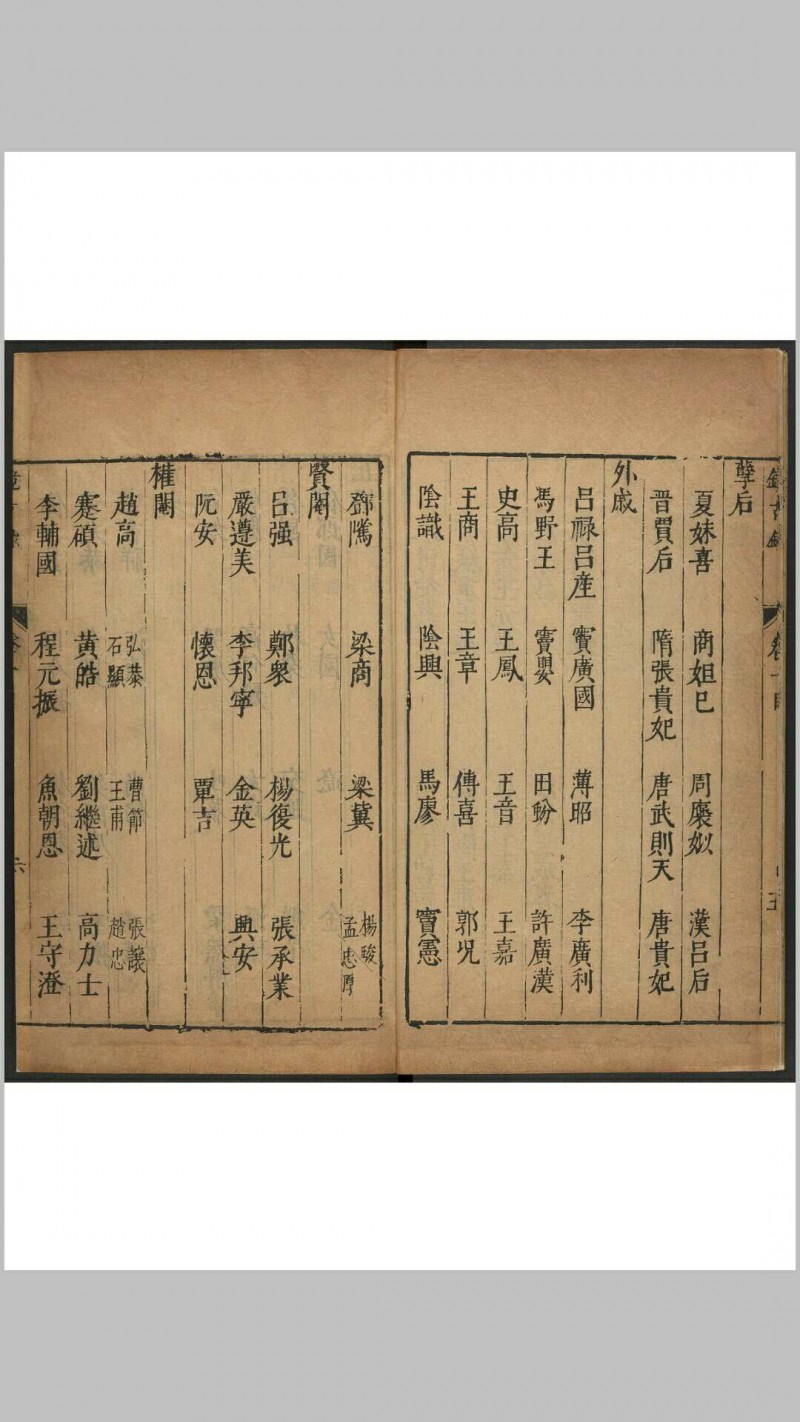 孽后
夏妹喜 商妲己 周褒姒 漢呂后
晋賈后 隋張貴妃 唐武則天 唐貴妃
外戚
呂祿呂産 竇廣國 薄昭 李廣利
馮野王 竇嬰 田蚡 許廣漢
史高 王鳳 王音 王嘉
王商 王章 傅喜 郭況
陰識 陰興 馬廖 竇憲
鄧騭 梁商 梁冀 楊駿 孟忠厚
賢閹
呂强 鄭衆 楊復光 張承業
嚴遵美 李邦寧 金英 興安
阮安 懷恩 覃吉
權閹
趙高 弘恭 石顯 曹節 王甫 張讓 趙忠
蹇碩 黃皓 劉繼述 高力士
李輔國 程元振 魚朝恩 王守澄